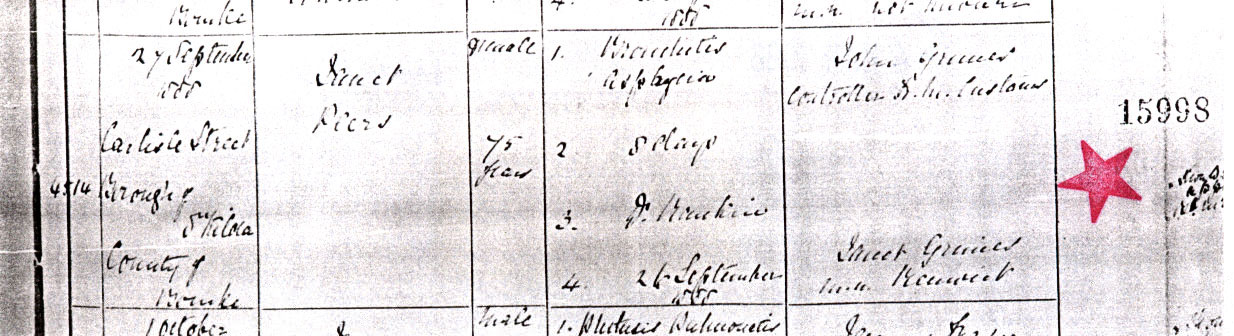 Bourke
4.
1888
not known
27 September
1888
Carlisle Street
4514 Borough of
St Kilda
County of
Bourke
Janet
Peers
Female
75
years
1. Bronchitis
Asphyxia
2. 8 days
3. Dr
4. 26 September
1888
John Grimes
Controller H.M. Customs
Janet Grimes
m.n. Renwick
15998
1 October
Male
1. Phthisis Pulmonalis